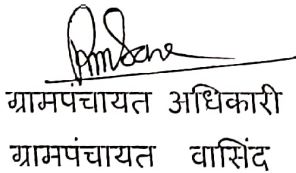 ग्रामपंचायत अधिकारी
ग्रामपंचायत वासिंद